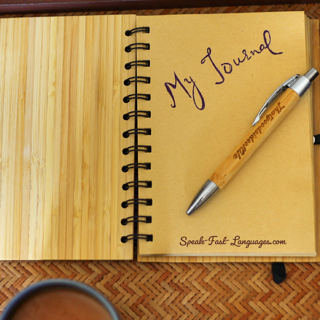 My Journal
Thatgoodvibeslife
Speak-Fast-Languages.com